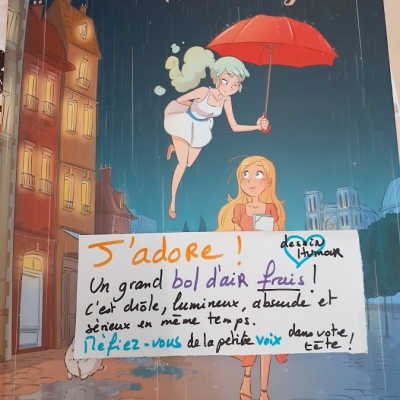 J'adore !
dessin
Humour
Un grand bol d'air frais !
C'est drôle, lumineux, absurde et
sérieux en même temps.
Méfiez-vous de la petite voix dans votre
tête !